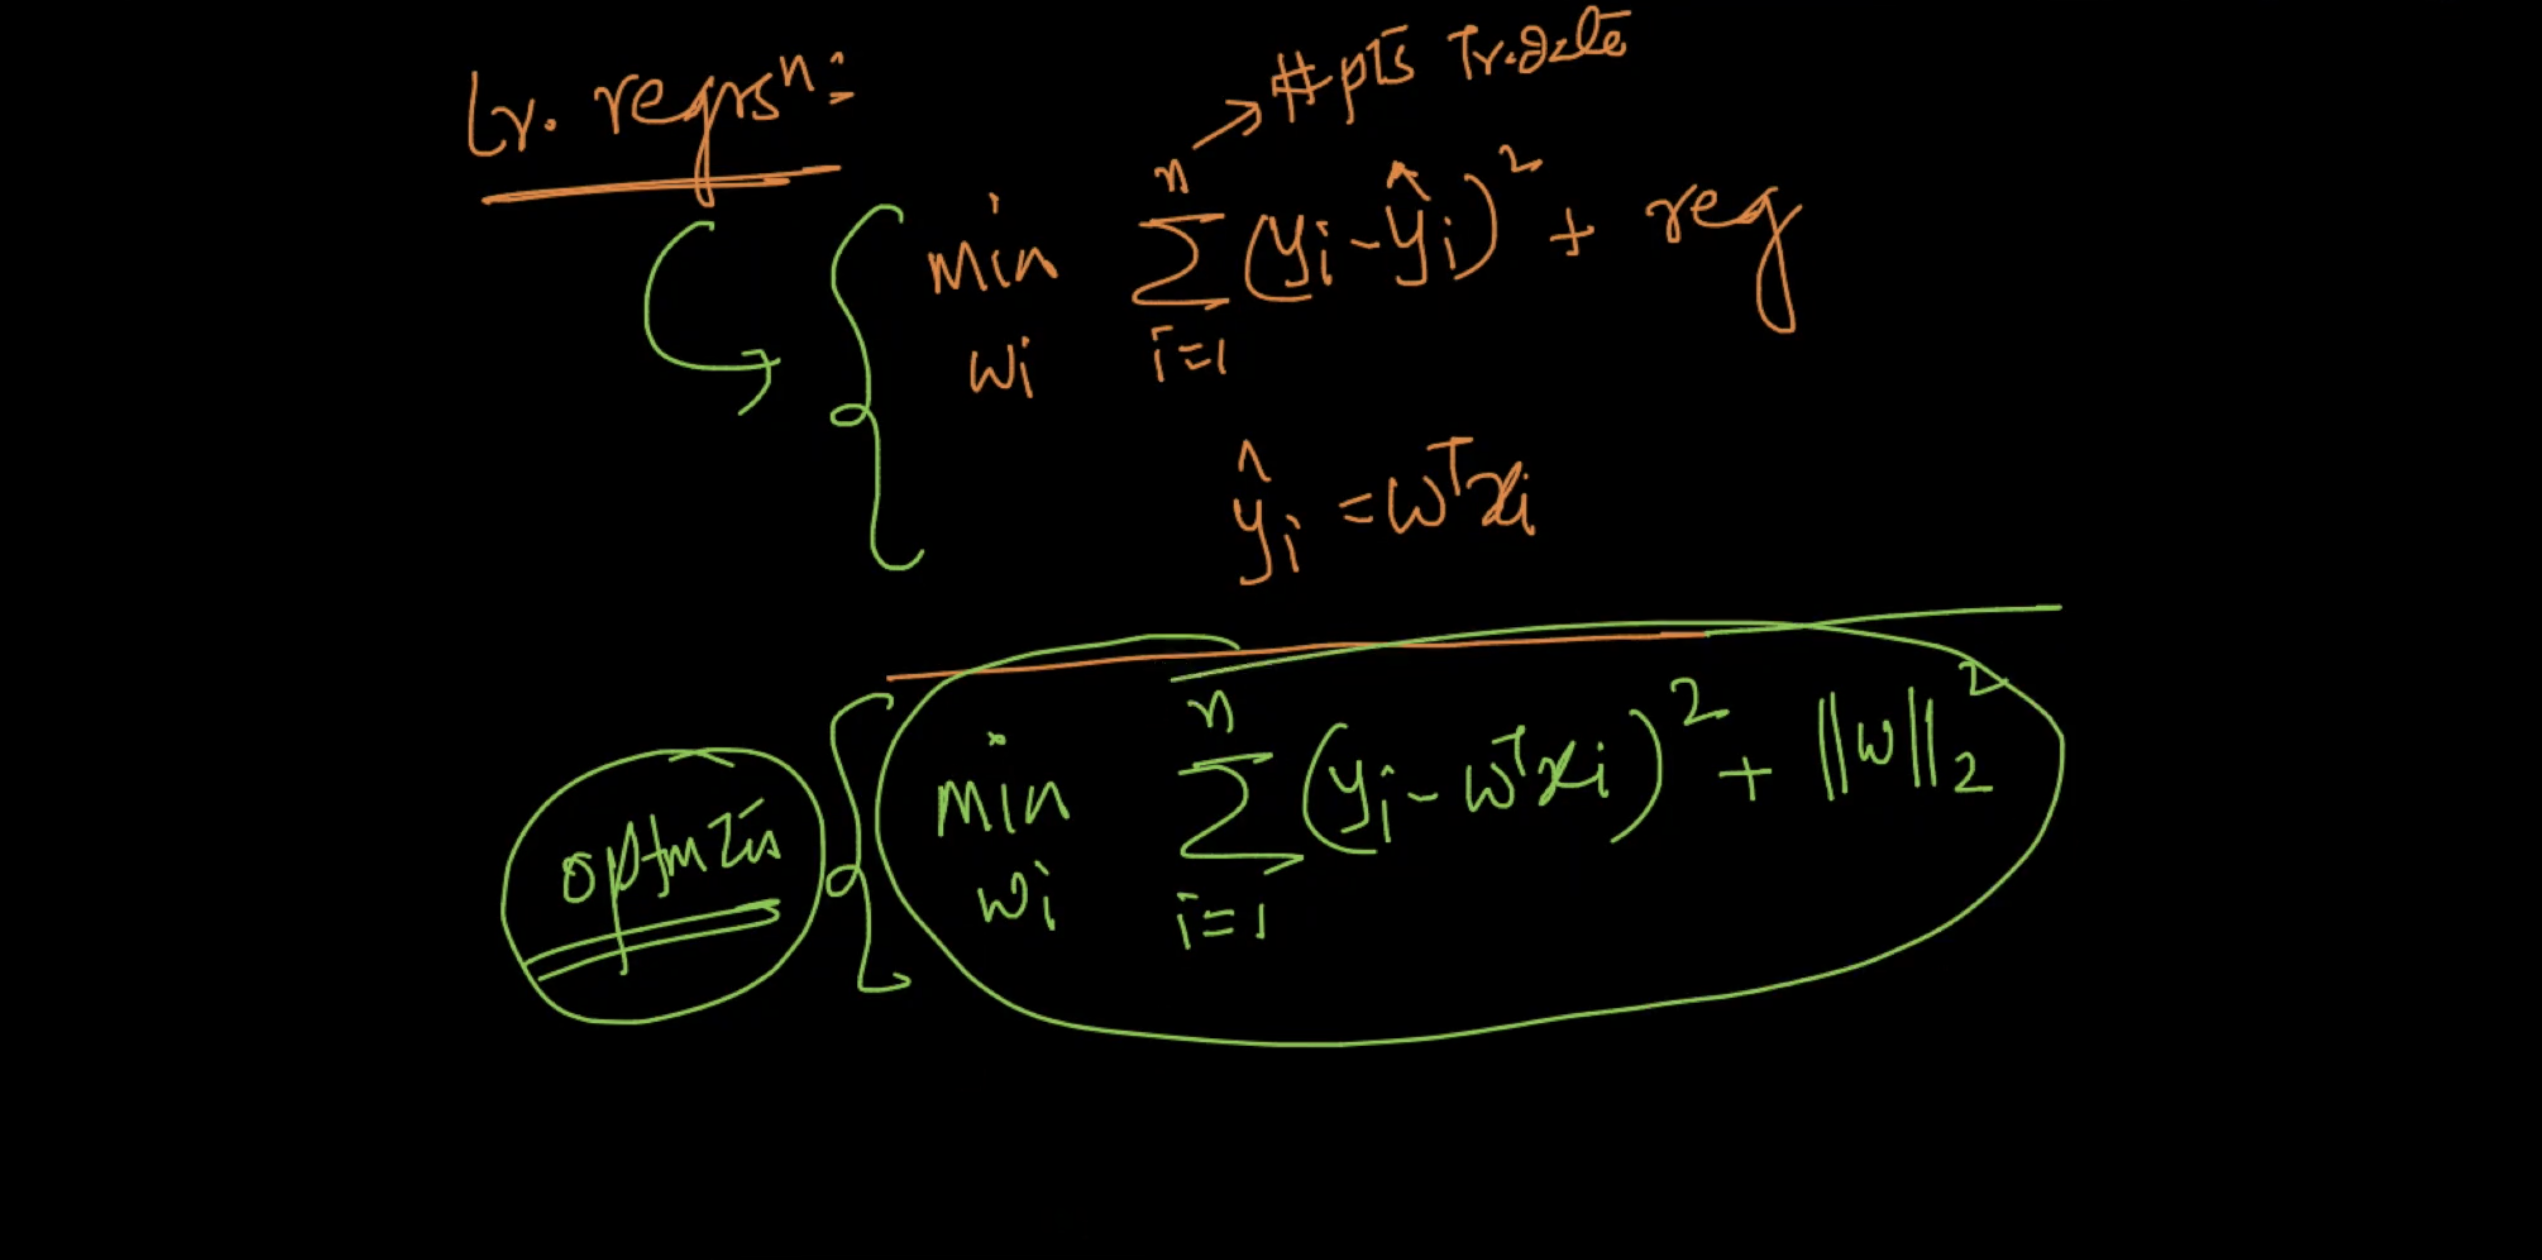 Lr. regrsⁿ:
→ #pts Tr.data
min_{wi} Σ_{i=1}^{n} (yi - ŷi)² + reg
ŷi = wᵀxi
optmzn
min_{wi} Σ_{i=1}^{n} (yi - wᵀxi)² + ||w||₂²